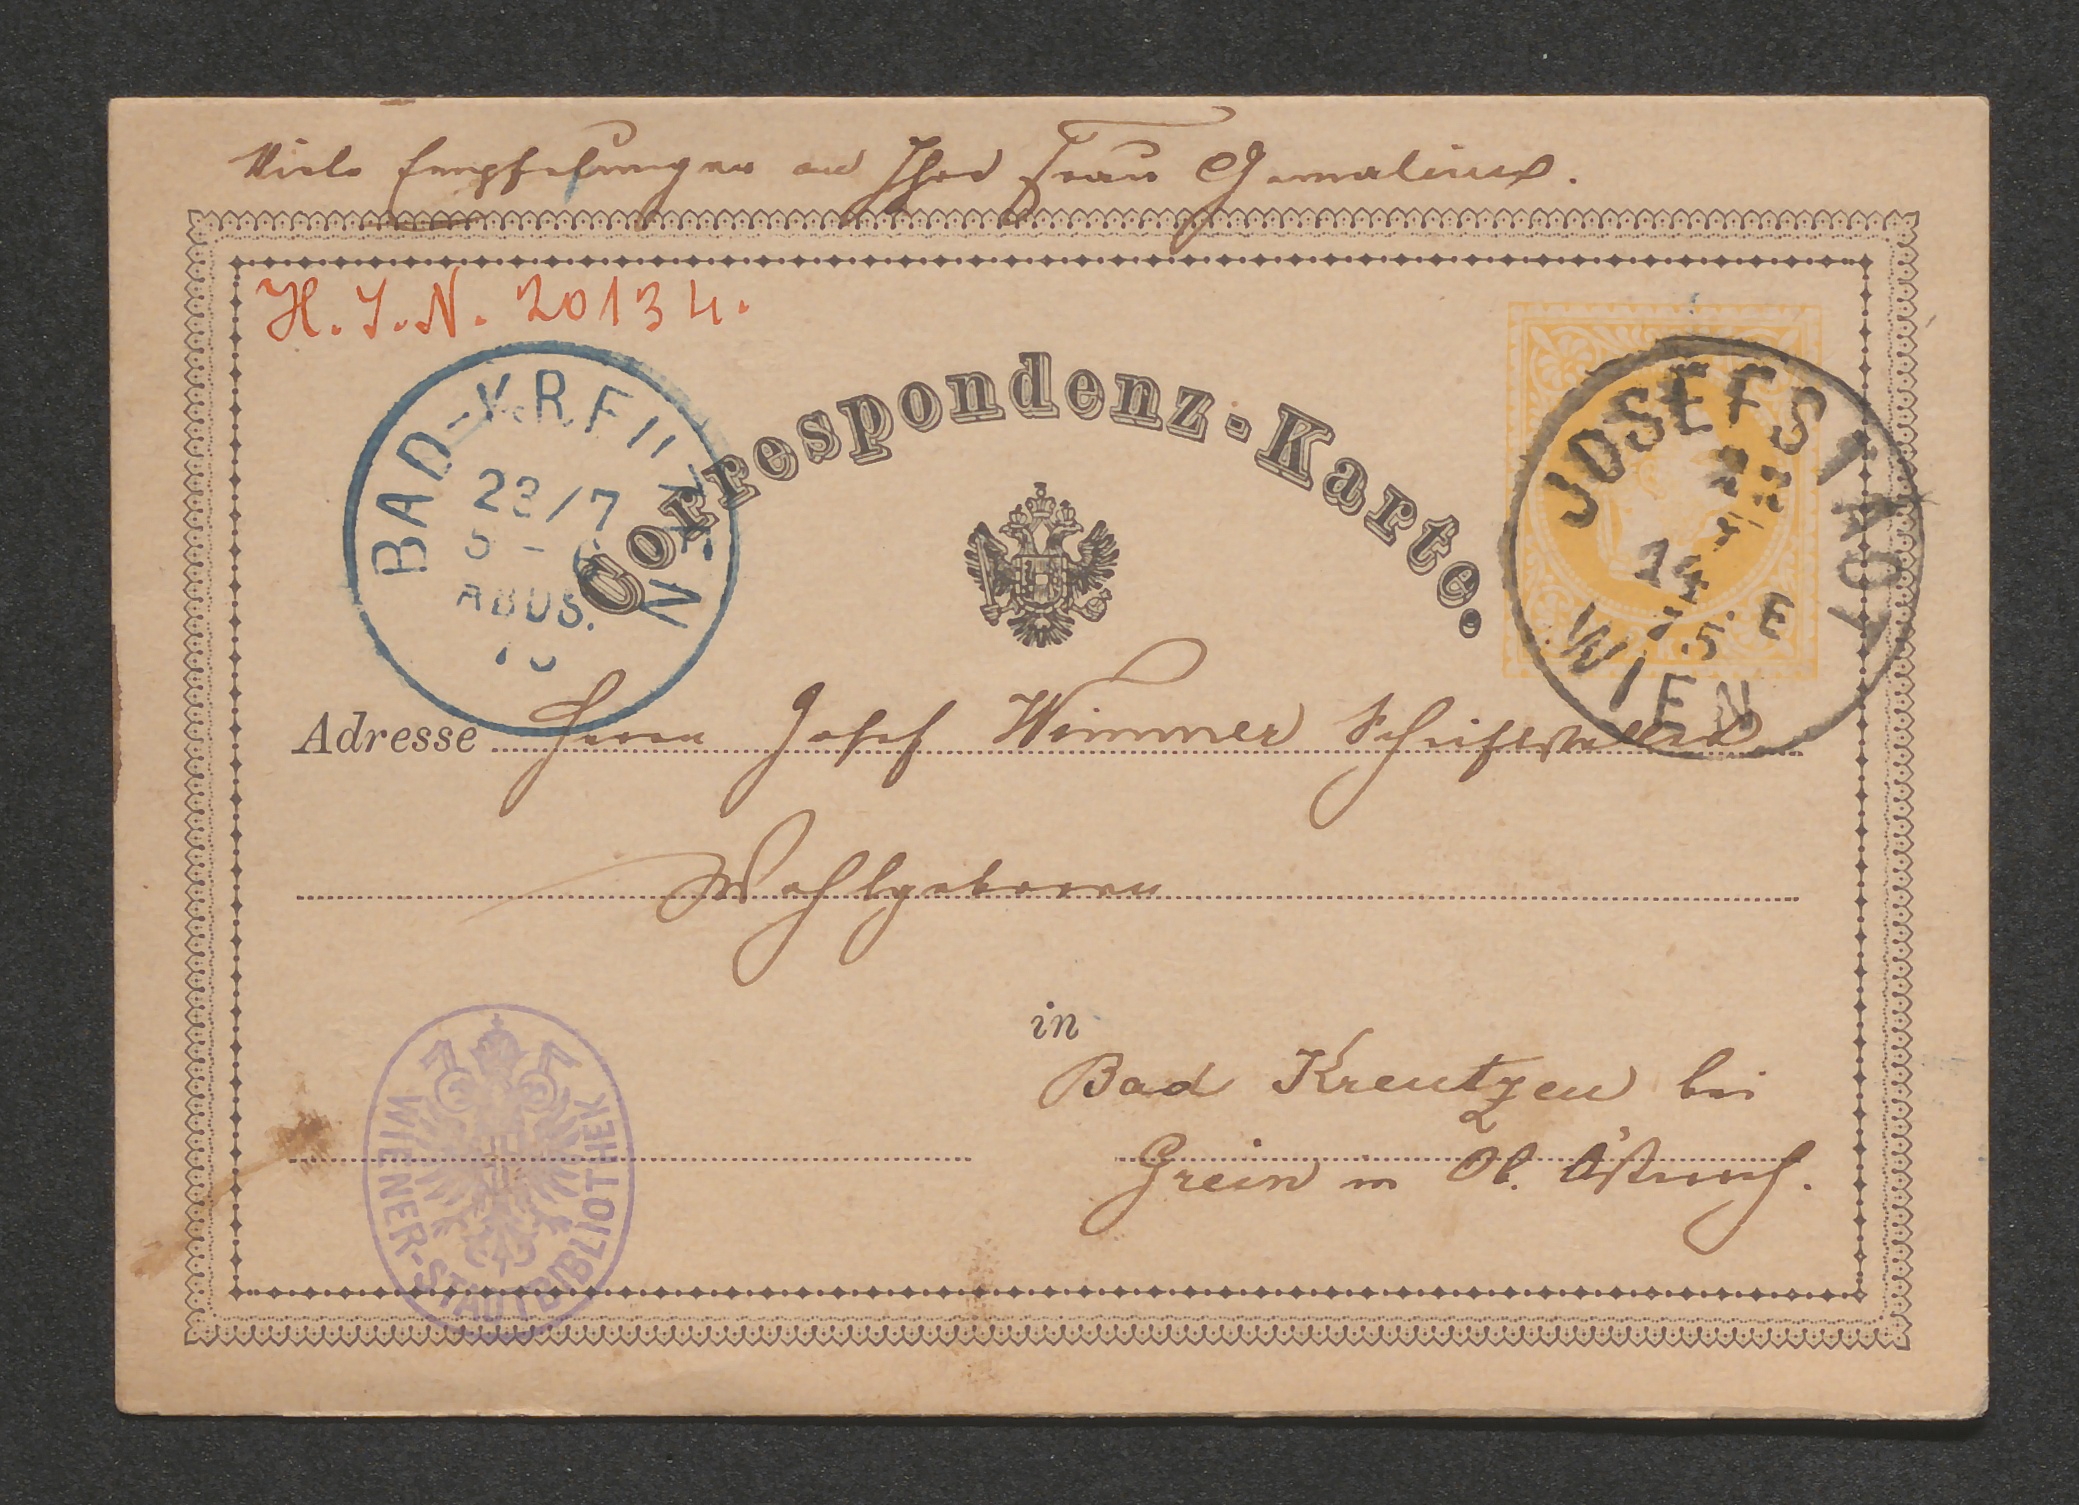 Viele Empfehlungen an Ihre Frau Gemalinn.
H. I. N. 20134.
BAD-KREUZEN
23/7
ABDS.
Correspondenz-Karte.
JOSEFSTADT
WIEN
Adresse Herrn Josef Wimmer Schriftsteller
Wohlgeboren
in
Bad Kreutzen bei
Grein in Ob. Östereich.
WIENER-STADTBIBLIOTHEK